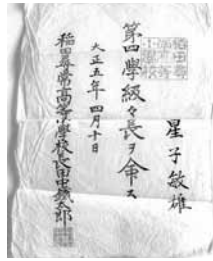 星子敏雄
第四學級々長ヲ命ス
大正五年四月十日
稲田尋常高等小學校長田中鐵太郎